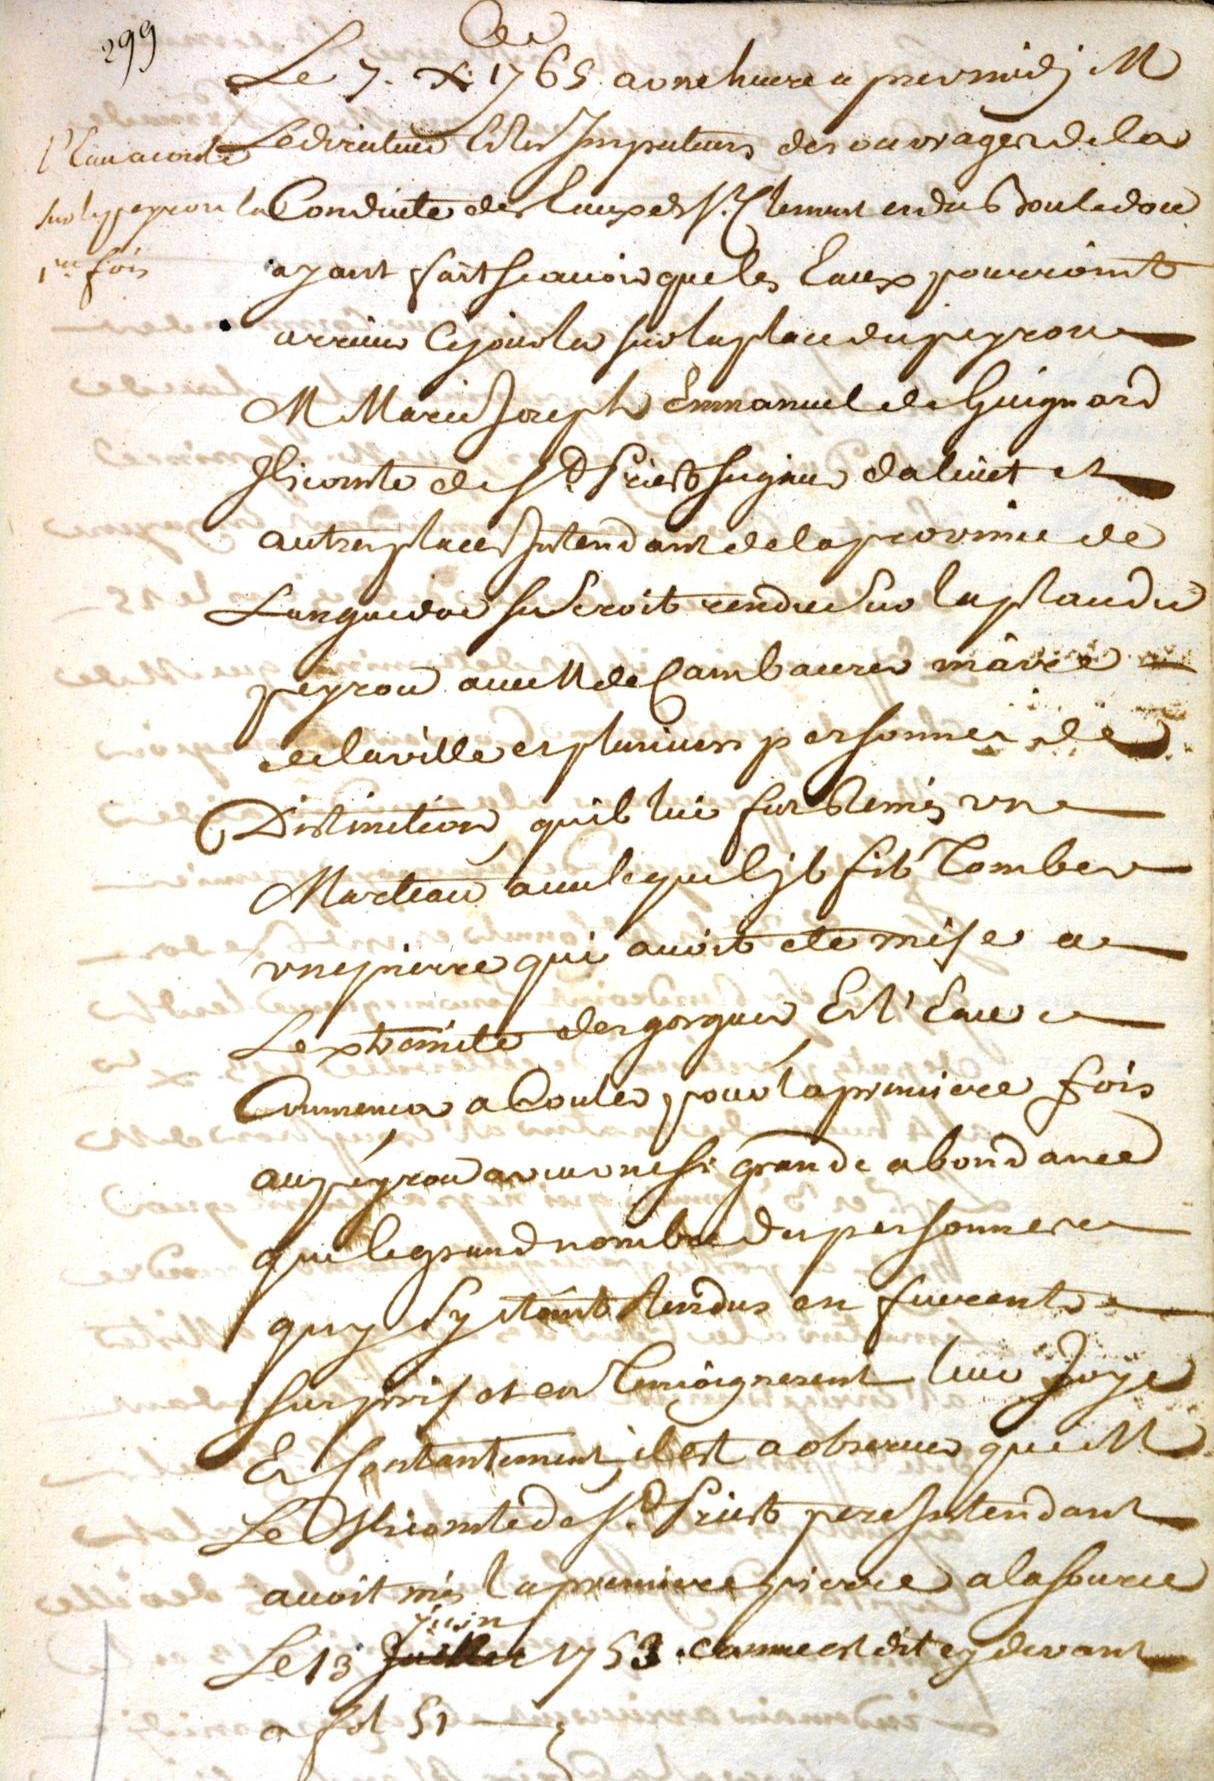 299
Le 7. xbre 1765 a une heure apres midj M
L'Eau a coulé
sur le peyrou la
1re fois
Le directeur et les Inspecteurs des ouvrages de la
Conduite des Eaux de St Clement et du Bouledou
ayant fait scavoir que les Eaux pourroint
arriver ce jour la sur la place du peyrou
M Marie Joseph Emmanuel de Guignard
Vicomte de St Priest seigneur dalivet et
autres places Intendant de la province de
Languedoc se seroit rendu sur la place du
peyrou avec M de Cambacerés maire
de la ville et plusieurs personnes de
Distinction, quil lui fut remis un
Marteau avec lequel jl fit Tomber
une pierre qui avoit eté mise a
Lextremité des gorgues Et l'Eau
Commença a Couler pour la premiere fois
au peyrou avec une si grande abondance
que le grand nombre des personnes
quy sy étoint rendus en furent
surpris et en Temoignerent leur Joye
Et Contantement, il est a observer que M
Le Vicomte de St Priest pere Intendant
avoit mis la premiere pierre a la source
juin
Le 13 Juillet 1753. comme est dit cy devant
a fol 51